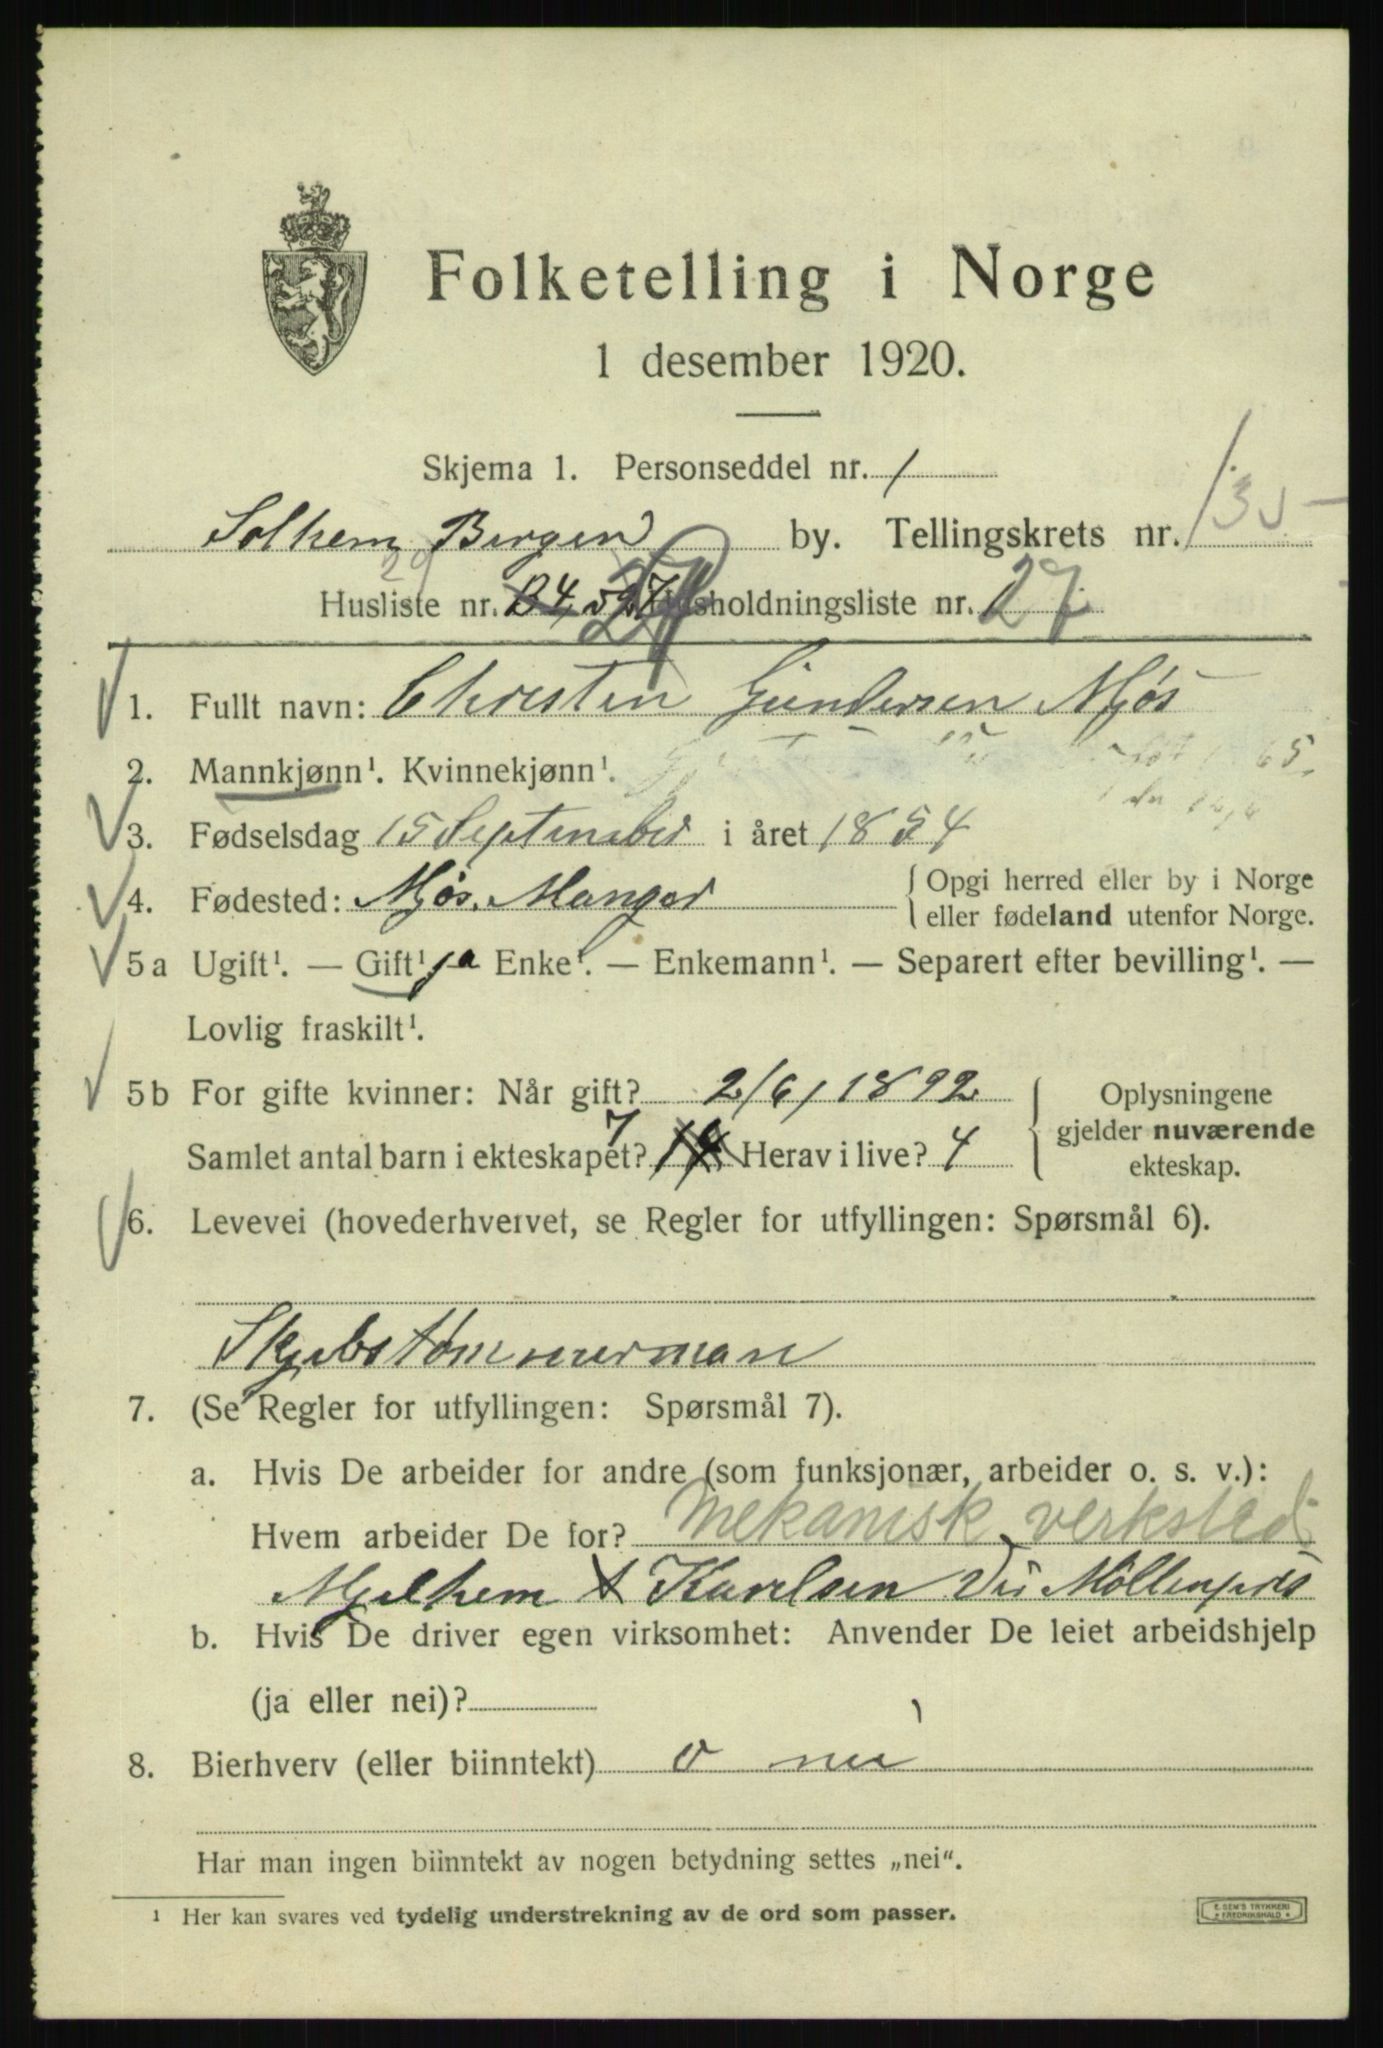 Folketelling i Norge
1 desember 1920.
Skjema 1. Personseddel nr. 1
Solhem Bergen by. Tellingskrets nr. 135
29
Husliste nr. B4 Husholdningsliste nr. 27
1. Fullt navn: Chresten Gundersen Mjøs
2. Mannkjønn¹. Kvinnekjønn¹.
3. Fødselsdag 15 September i året 1854
4. Fødested: Mjøs. Manger { Opgi herred eller by i Norge
eller fødeland utenfor Norge.
5a Ugift¹. — Gift¹ ja Enke¹. — Enkemann¹. — Separert efter bevilling¹. —
Lovlig fraskilt¹.
5b For gifte kvinner: Når gift? 2/6, 1892 { Oplysningene
gjelder nuværende
ekteskap.
Samlet antal barn i ekteskapet? 7 Herav i live? 4
6. Levevei (hovederhvervet, se Regler for utfyllingen: Spørsmål 6).
Skjebstømmerman
7. (Se Regler for utfyllingen: Spørsmål 7).
a. Hvis De arbeider for andre (som funksjonær, arbeider o. s. v.):
Hvem arbeider De for? Mekanisk verksted
Mjelhem & Karlsen
b. Hvis De driver egen virksomhet: Anvender De leiet arbeidshjelp
(ja eller nei)?
8. Bierhverv (eller biinntekt) o nei
Har man ingen biinntekt av nogen betydning settes „nei“.
¹ Her kan svares ved tydelig understrekning av de ord som passer.
E. SEM'S TRYKKERI
FREDRIKSHALD